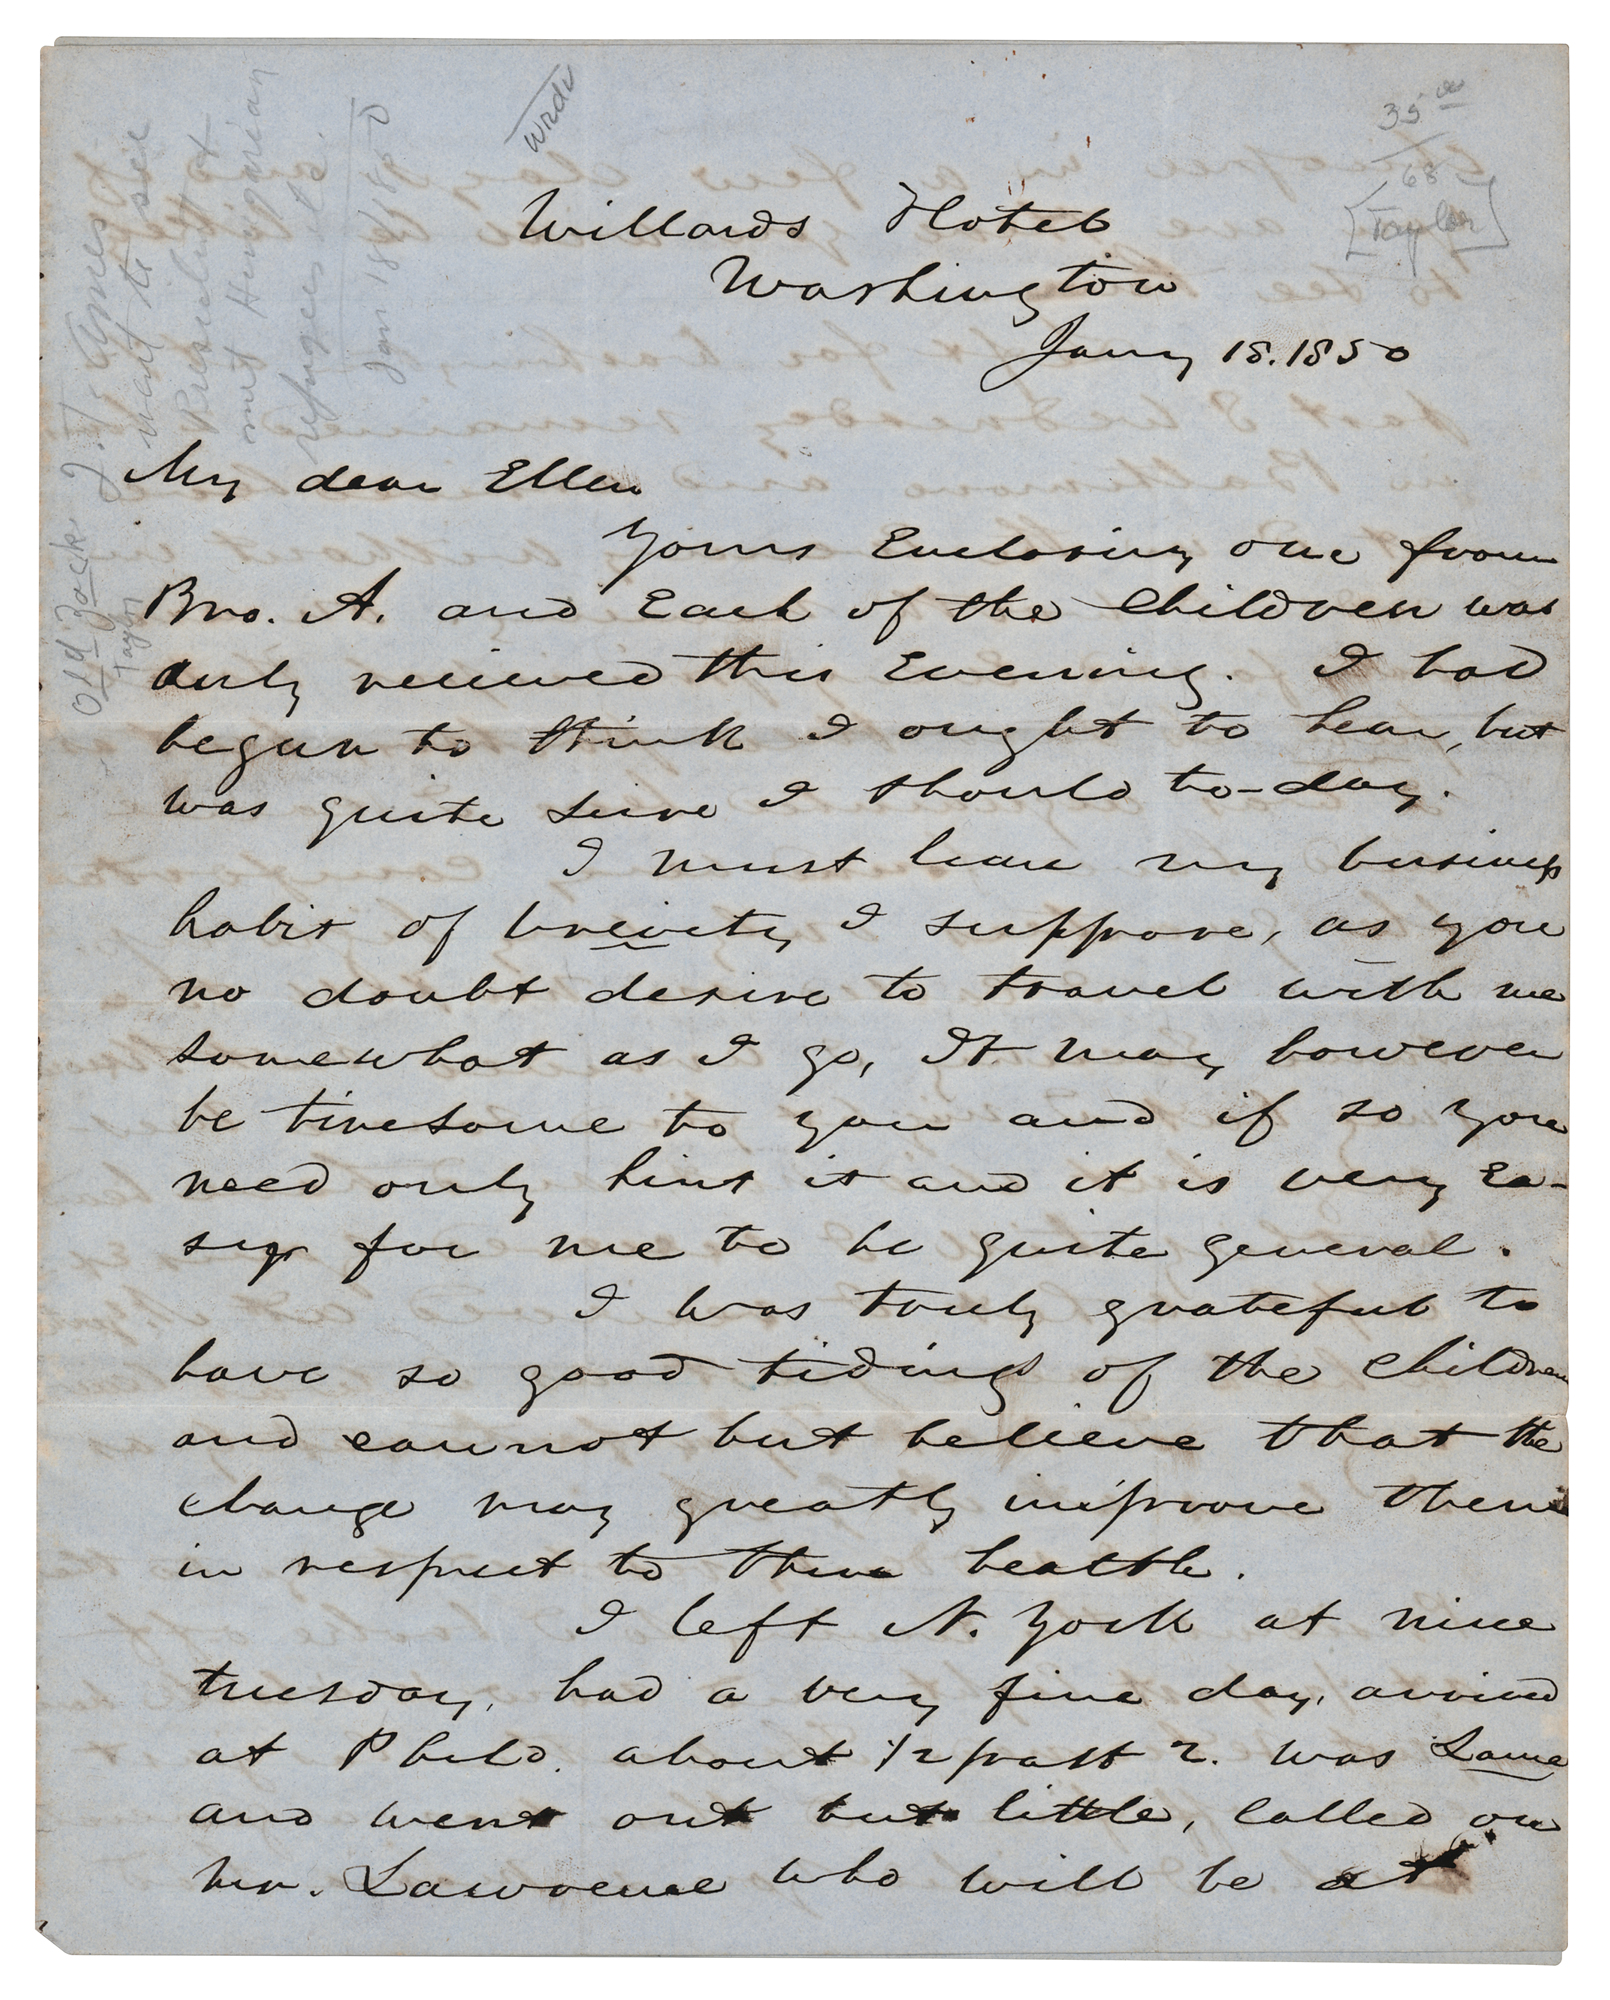 35 00
68
[Taylor]
wrds
J. T. Ames
went to see
President &
met Hungarian
refugees etc.
Jan 18/1850
Old Zack
Taylor
Willards Hotel
Washington
Jany 18. 1850
My dear Ellen
Yours Enclosing one from
Bro. A. and Each of the Children was
duly recieved this Evening. I had
begun to think I ought to hear, but
was quite sure I should to-day.
I must leave my business
habit of breivity I suppose, as you
no doubt desire to travel with me
somewhat as I go, It may however
be tiresome to you and if so you
need only hint it and it is very Ea-
sy for me to be quite general.
I was truly grateful to
have so good tidings of the Children
and cannot but believe that the
change may greatly improve them
in respect to their health.
I left N. York at nine
tuesday, had a very fine day, arrived
at Phild. about 1/2 past 2. was Lame
and went out but little, Called on
Mr. Lawrence who will be at